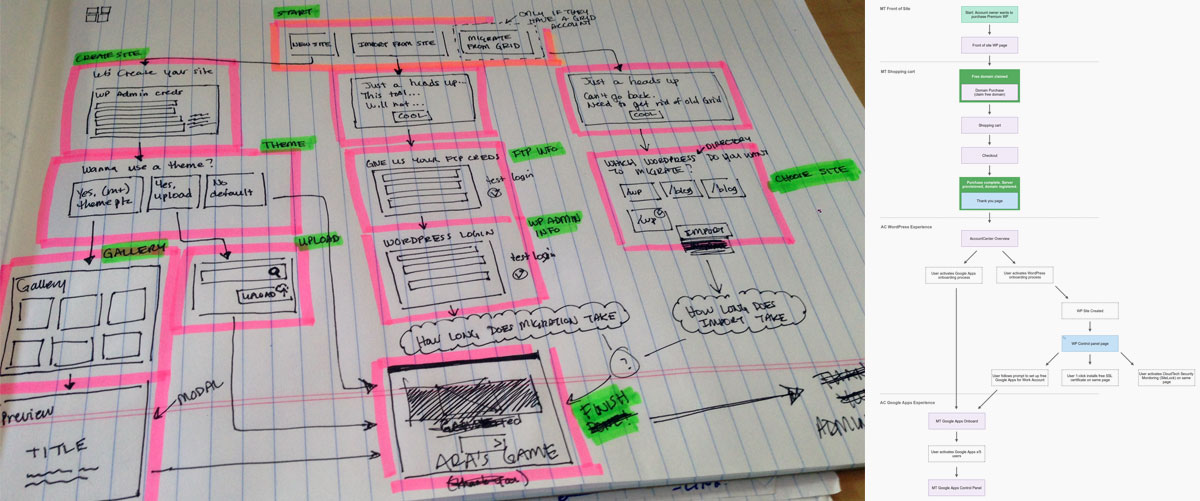 START
ONLY IF THEY
HAVE A GRID
ACCOUNT
NEW SITE
IMPORT FROM SITE
MIGRATE
FROM GRID
CREATE SITE
We Create Your site
WP Admin creds
Just a heads up...
This tool...
Will not...
COOL
Just a heads up
Can't go back.
Need to get rid of old Grid
COOL
THEME
Wanna use a theme?
Yes, (mt)
theme plz
Yes,
upload
No
default
GIVE US YOUR FTP CREDS
test login
FTP INFO
WHICH WORDPRESS DIRECTORY DO YOU WANT
TO MIGRATE?
/wp
/blog
/blog
IMPORT
CHOOSE SITE
GALLERY
UPLOAD
WORDPRESS LOGIN
test login
WP ADMIN
INFO
Gallery
UPLOAD
HOW LONG DOES MIGRATION TAKE
HOW LONG DOES
IMPORT TAKE
?
Preview
TITLE
MODAL
FINISH
ARA'S GAME
ADMIN
MT Front of Site
Start: Account owner wants to
purchase Premium WP
Front of site WP page
MT Shopping cart
Free domain claimed
Domain Purchase
(claim free domain)
Shopping cart
Checkout
Purchase complete, Server
provisioned, domain registered.
Thank you page
AC WordPress Experience
AccountCenter Overview
User activates Google Apps
onboarding process
User activates WordPress
onboarding process
WP Site Created
WP Control panel page
User follows prompt to set up free
Google Apps for Work Account
User 1-click installs free SSL
certificate on same page
User activates CloudTech Security
Monitoring (SiteLock) on same
page
AC Google Apps Experience
MT Google Apps Onboard
User activates Google Apps x/5
users
MT Google Apps Control Panel